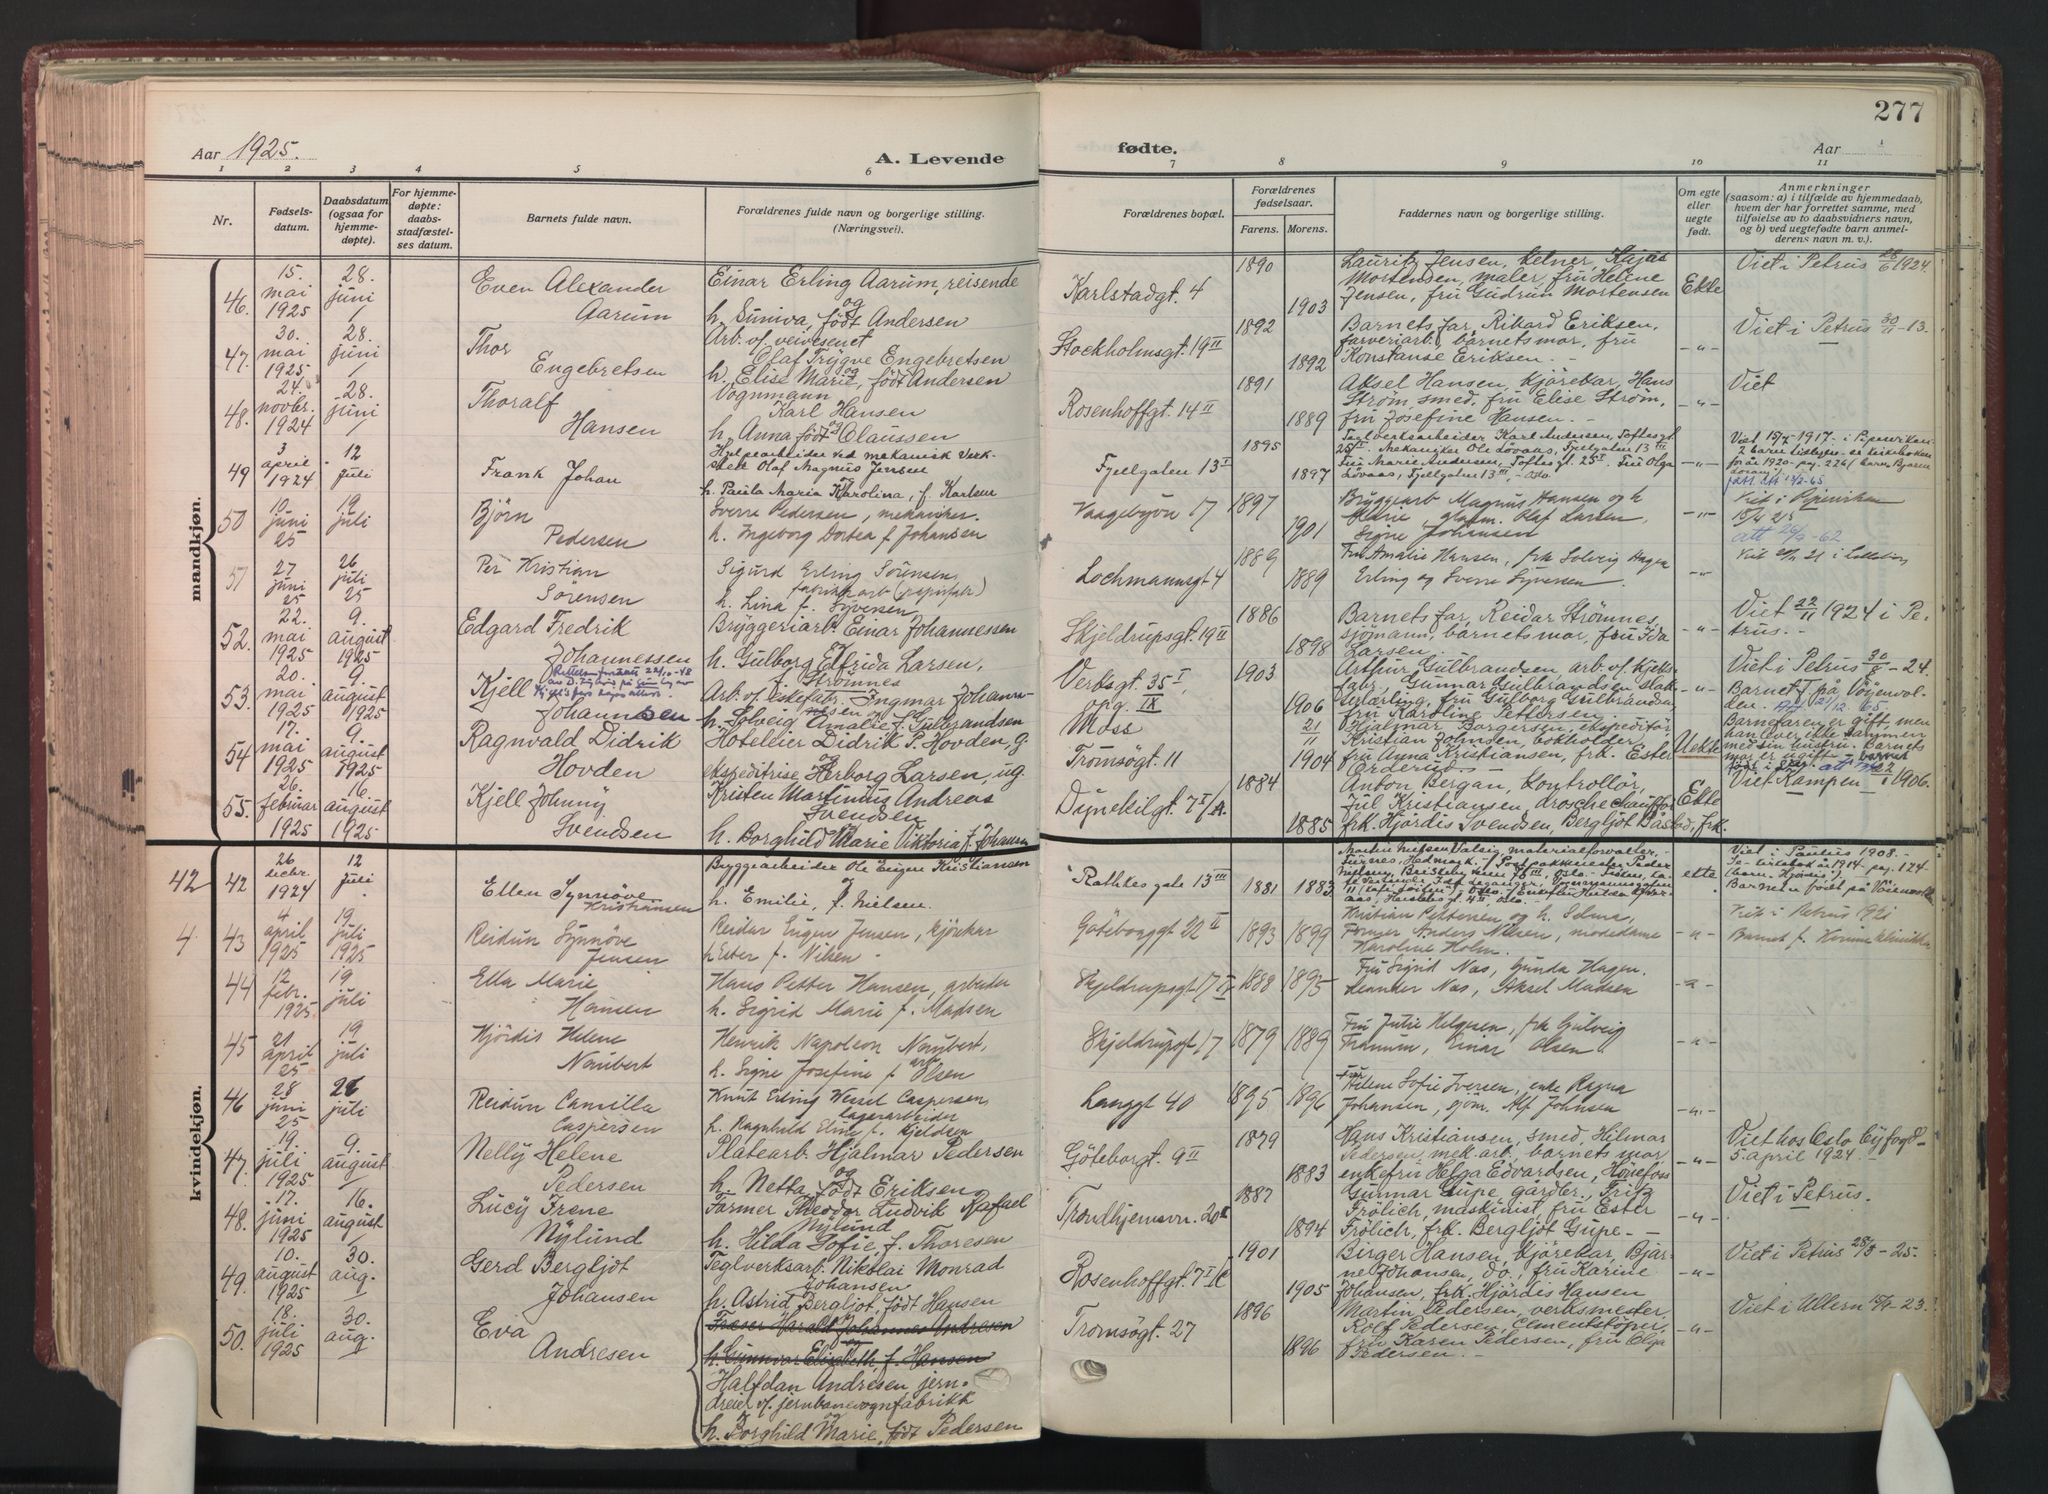 277
Aar 1925.
A. Levende
fødte.
Aar
1 2 3 4 5 6 7 8 9 10 11
Nr.
Fødsels-
datum.
Daabsdatum
(ogsaa for
hjemme-
døpte).
For hjemme-
døpte:
daabs-
stadfæstel-
ses datum.
Barnets fulde navn.
Forældrenes fulde navn og borgerlige stilling.
(Næringsvei).
Forældrenes bopæl.
Forældrenes
fødselsaar.
Farens. Morens.
Faddernes navn og borgerlige stilling.
Om egte
eller
uegte
født.
Anmerkninger
(saasom: a) i tilfælde av hjemmedaab,
hvem der har forrettet samme, med
tilføielse av to daabsvidners navn,
og b) ved uegtefødte barn anmel-
derens navn m. v.).
mandkjøn.
46. 15. mai 1925 28. juni
Even Alexander
Aarum
Einar Erling Aarum, reisende
og
h. Suniva, født Andersen
Karlstadgt. 4
1890 1903
Lauritz Jensen, kelner, Kajas
Mortensen, maler, fru Helene
Jensen, fru Gudrun Mortensen
Ekte
Viet i Petrus 28/6 1924.
47. 30. mai 1925 28. juni
Thor
Engebretsen
Arb. v/ veivesenet
Olaf Trygve Engebretsen
og
h. Elise Marie, født Andersen
Stockholmsgt. 19 II
1892 1892
Barnets far, Rikard Eriksen,
farveriarb., barnets mor, fru
Konstanse Eriksen. -
-"-
Viet i Petrus 30/11-13.
48. 24. novbr. 1924 28. juni
Thoralf
Hansen
Vognmann
Karl Hansen
og
h. Anna født Claussen
Rosenhoffgt. 14 II
1891 1889
Aksel Hansen, kjørekar, Hans
Strøm, smed, fru Elise Strøm,
fru Josefine Hansen. -
-"-
Viet
49 3 april 1924 12 juli
Frank Johan
Hjelpearbeider ved mekanisk Verk-
sted Olaf Magnus Jensen
og
h. Paula Maria Karolina, f. Karlsen
Fjellgaten 13 I
1895 1897
Teglverksarbeider Karl Andersen, Toftesgt
25 I. Mekaniker Ole Lövaas, Fjellgaten 13 III
Fru Marie Andersen, Toftesgt. 25 I, Fru Olga
Lövaas, Fjellgaten 13 III, Oslo.
-"-
Viet 15/7-1917- i Piperviken
for år 1920- pag. 226
50 10 juni 25 19 juli
Björn
Pedersen
Sverre Pedersen, mekaniker.
h. Ingeborg Dortea f Johansen
Vaagebyvn 17
1897 1901
Bryggearb Magnus Hansen og h
Marie, glasm. Olaf Larsen,
Signe Johansen
-"-
Viet i Piperviken
18/4 25
att 26/9-62
51 27 juni 25 26 juli 25
Per Kristian
Sörensen
Sigurd Erling Sörensen,
fabrikkarb (papirfabr)
h. Lina f. Syversen
Lochmannsgt 4
1889 1889
Fru Amalie Hansen, frk Solveig Hagen
Erling og Sverre Syversen.
-"-
52. 22. mai 1925 9. august 1925
Edgard Fredrik
Johannessen
Bryggeriarb. Einar Johannessen
og
h. Gulborg Elfrida Larsen,
f. Strømnes
Skjeldrupsgt. 19 II
1886 1898
Barnets far, Reidar Strømnes,
sjömann, barnets mor, fru Ida
Larsen. -
-"-
Viet 22/11 1924 i Pe-
trus. -
53. 20. mai 1925 9. august 1925
Kjell
Johannsen
Arb. v/ eskefabr. Ingmar Johans-
sen og
h. Solveig Amalie f. Gulbrandsen
Verksgt. 35 I,
opg. IX
1903 1906
Arthur Gulbrandsen, arb. v/ kjeks-
fabr., Gunnar Gulbrandsen, slak-
terlærling, fru Gulborg Gulbrandsen,
fru Karoline Pettersen.
-"-
Viet i Petrus 30/8-24.
Barnet f. på Vöyenvol-
den. Att 21/12 65.
54 17. mai 1925 9. august 1925
Ragnvald Didrik
Hovden
Hoteleier Didrik P. Hovden, g.
og
ekspeditrise Herborg Larsen, ug.
Moss
Tromsøgt. 11
21/11 1904
Hjalmar Borgersen, ekspeditör,
Kristian Johnsen, bokholder,
fru Anna Kristiansen, frk. Ester
Orderud.
Uekte
Barnefaren er gift, men
han lever ikke sammen
med sin hustru. Barnets
mor er ugift.
55. 26. februar 1925 16. august 1925
Kjell Johnny
Svendsen
Kristen Martinius Andreas
Svendsen
og
h. Borghild Marie Viktoria f. Johansen
Dynekilgt. 7 I/A.
1884 1885
Anton Bergan, kontrollör,
Jul Kristiansen, drosche chauffør,
frk. Hjördis Svendsen, Bergljot Båstad, frk.
Ekte
Viet Kampen 22/ 1906.
kvindekjøn.
42 42 26 decbr. 1924 12 juli
Ellen Synnöve
Kristiansen
Bryggearbeider Ole Eugen Kristiansen
og
h. Emilie, f. Nielsen.
Rathkes gate 13 III
1881 1883
ekte
Viet i Paulus 1908. -
Se kirkebok år 1914 - pag. 124 -
(barn: Hjördis).
Barnet født på Vöienvolden
4 43 4 april 1925 19 juli 1925
Reidun Synnöve
Jensen
Reidar Eugen Jensen, kjörekar
h Ester f. Nilsen -
Göteborggt 22 II
1893 1899
Kristian Pettersen og h. Selma,
Former Anders Nielsen, modedame
Karoline Holm.
-"-
Viet i Petrus 1921
Barnet f. Kvinneklinikken
44 12 febr. 1925 19 juli
Ella Marie
Hansen
Hans Petter Hansen, arbeider
h. Sigrid Marie f. Madsen
Skjeldrupsgt 17 II
1888 1895
Fru Sigrid Nas, Gunda Hagen.
Leander Nas, Aksel Madsen
-"-
45 21 april 25 19 juli
Hjördis Helene
Norubert
Henrik Napoleon Norubert,
arb
h. Signe Josefine f Olsen
Skjeldrupgt 17
1879 1889
Fru Julie Helgesen, frk Gulveig
Framum, Einar Olsen
-"-
46 28 juni 25 26 juli
Reidun Camilla
Caspersen
Knut Erling Wessel Caspersen,
lagerarbeider
h. Ragnhild Eline f. Kjeldsen
Langgt 40
1895 1896
Fru
Helene Sofie Iversen, enke Ragna
Johansen, sjöm. Alf Johnsen
-"-
47. 19. juli 1925 9. august
Nelly Helene
Pedersen
Platearb. Hjalmar Pedersen
og
h. Netta, født Eriksen
Göteborgt. 9 II
1879 1883
Hans Kristiansen, smed, Hilmar
Pedersen, mek. arb., barnets mor,
enkefru Helga Edvardsen, Hönefoss
-"-
Viet hos Oslo byfogd -
5 april 1924. -
48. 17. juni 1925 16. august
Lucy Irene
Nylund
Former Theodor Ludvik Rafael
Nylund
h. Hilda Sofie, f. Thoresen
Trondhjemsvn. 20 II
1887 1894
Gunnar Gupe, gårdbr., Fritz
Frölich, maskinist, fru Ester
Frölich, frk. Bergljot Gupe. -
-"-
Viet i Petrus.
49. 10. august 1925 30. aug.
Gerd Bergljot
Johansen
Teglverksarb. Nikolai Monrad
Johansen
h. Astrid Bergljot, født Hansen
Rosenhoffgt. 7 I/C
1901 1905
Birger Hansen, kjörekar, Bjar-
ne Johansen, do., fru Karine
Johansen, frk. Hjördis Hansen
-"-
Viet i Petrus 28/3-25.
50. 18. juli 1925 30. aug.
Eva
Andresen
Fraser Harald Johannes Andresen
og
h. Gunnvor Elisabeth, f. Hansen
Halfdan Andresen jern-
dreier v/ jernbanevognfabrikk
og
h. Borghild Marie, født Pedersen
Tromsögt. 27
1896 1896
Martin Pedersen, verksmester,
Rolf Pedersen, cementstöper,
fru Karen Pedersen, fru Olga
Pedersen. -
-"-
Viet i Ullern 15/9-23.